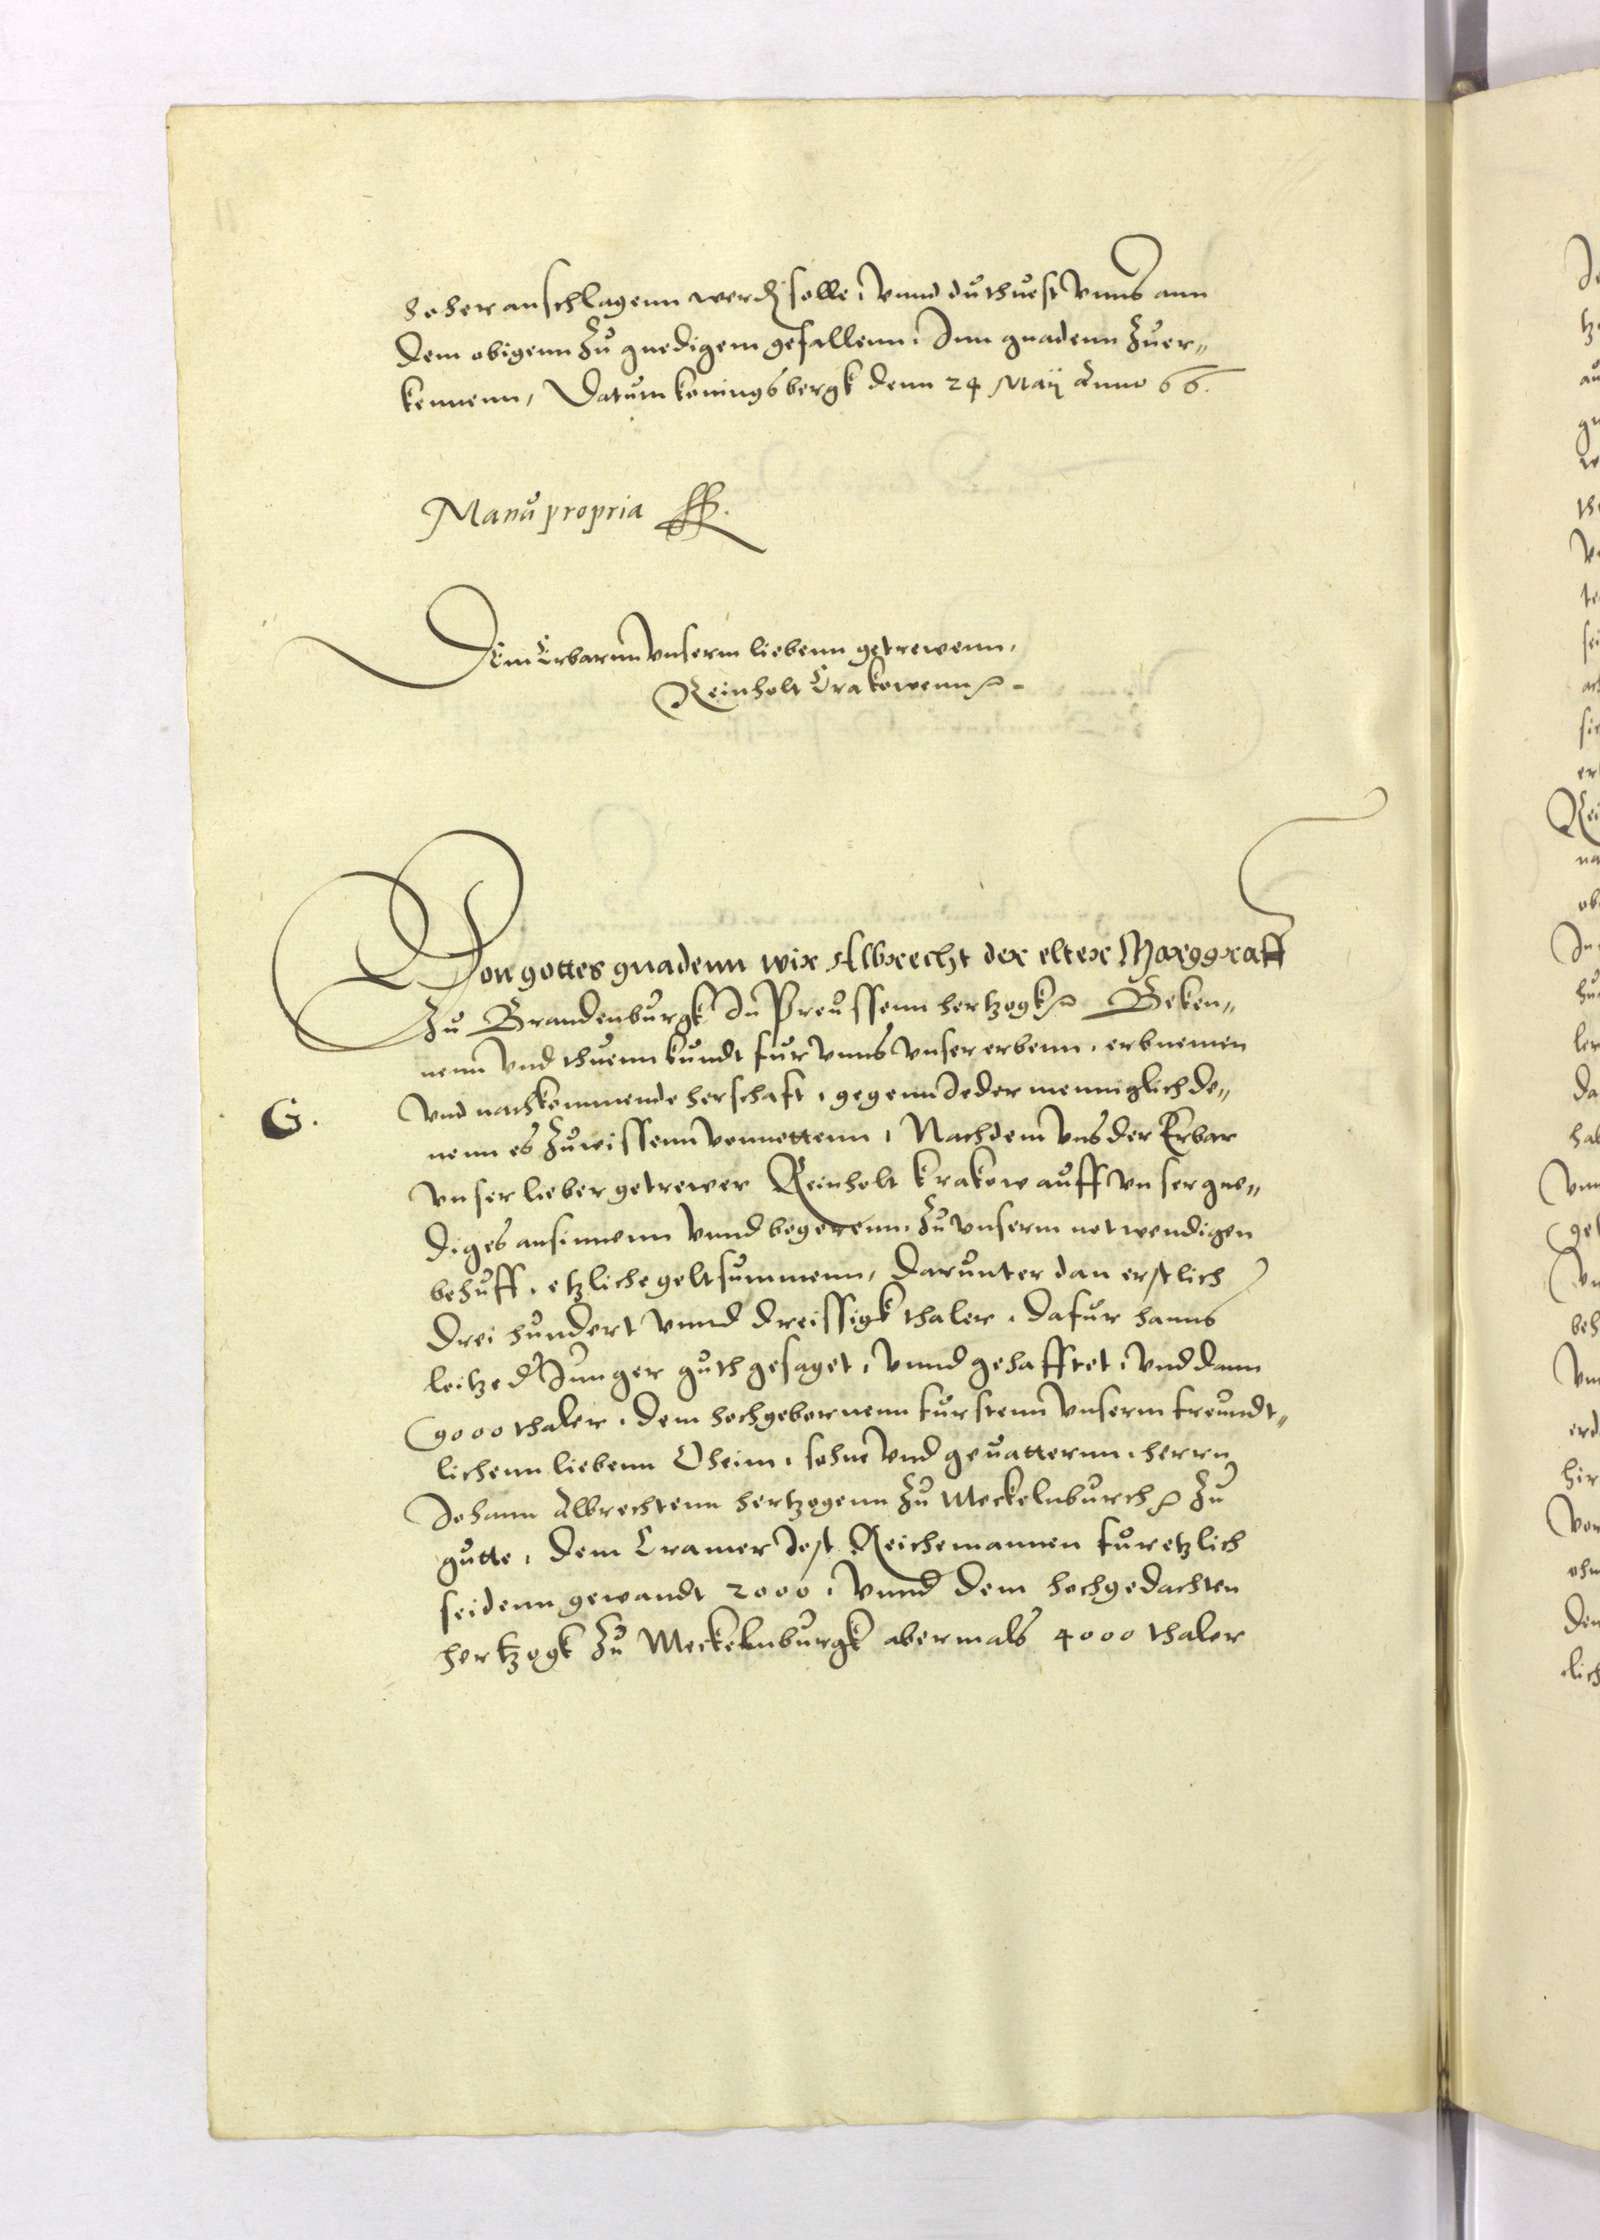 hoher anschlagenn werdn solle, vnnd du thuest vnns ann
dem obigenn zu gnedigem gefallenn, Inn gnadenn zuer„
kennenn, Datum koningsbergk denn 24 Maij Anno 66.
Manu propria
Dem Erbarnn vnserm liebenn getrewenn,
Reinholt Crakowenn
Von gottes gnadenn wir Albrecht der elter Marggraff
zu Brandenburgk In Preussenn hertzogk Beken„
nenn vnd thuenn kundt fur vnns vnser erbenn, erbnemen
G.
vnd nachkommende herschaft, gegenn Jedermenniglich de„
nenn es zuwissenn vonnettenn, Nachdem vns der Erbar
vnser lieber getrewer Reinholt krakow auff vnser gne„
diges ansinnenn vnnd begerenn, zu vnserm notwendigen
behuff, etzliche geltsummenn, darunter dan erstlich
drei hundert vnnd dreissigk thaler, dafur hanns
Junger guth gesaget, vnnd gehafftet, vnd dann
9000 thaler, dem hochgebornenn furstenn vnserm freundt„
lichenn liebenn Oheim, sohne vnd geuatternn, herrn
Johann Albrechtenn hertzogenn zu Meckelnburch zu
gutte, dem Cramer Jost Reichemannen fur etzlich
seidenn gewandt 2000, vnnd dem hochgedachten
hertzogk zu Meckelnburgk abermals 4000 thaler